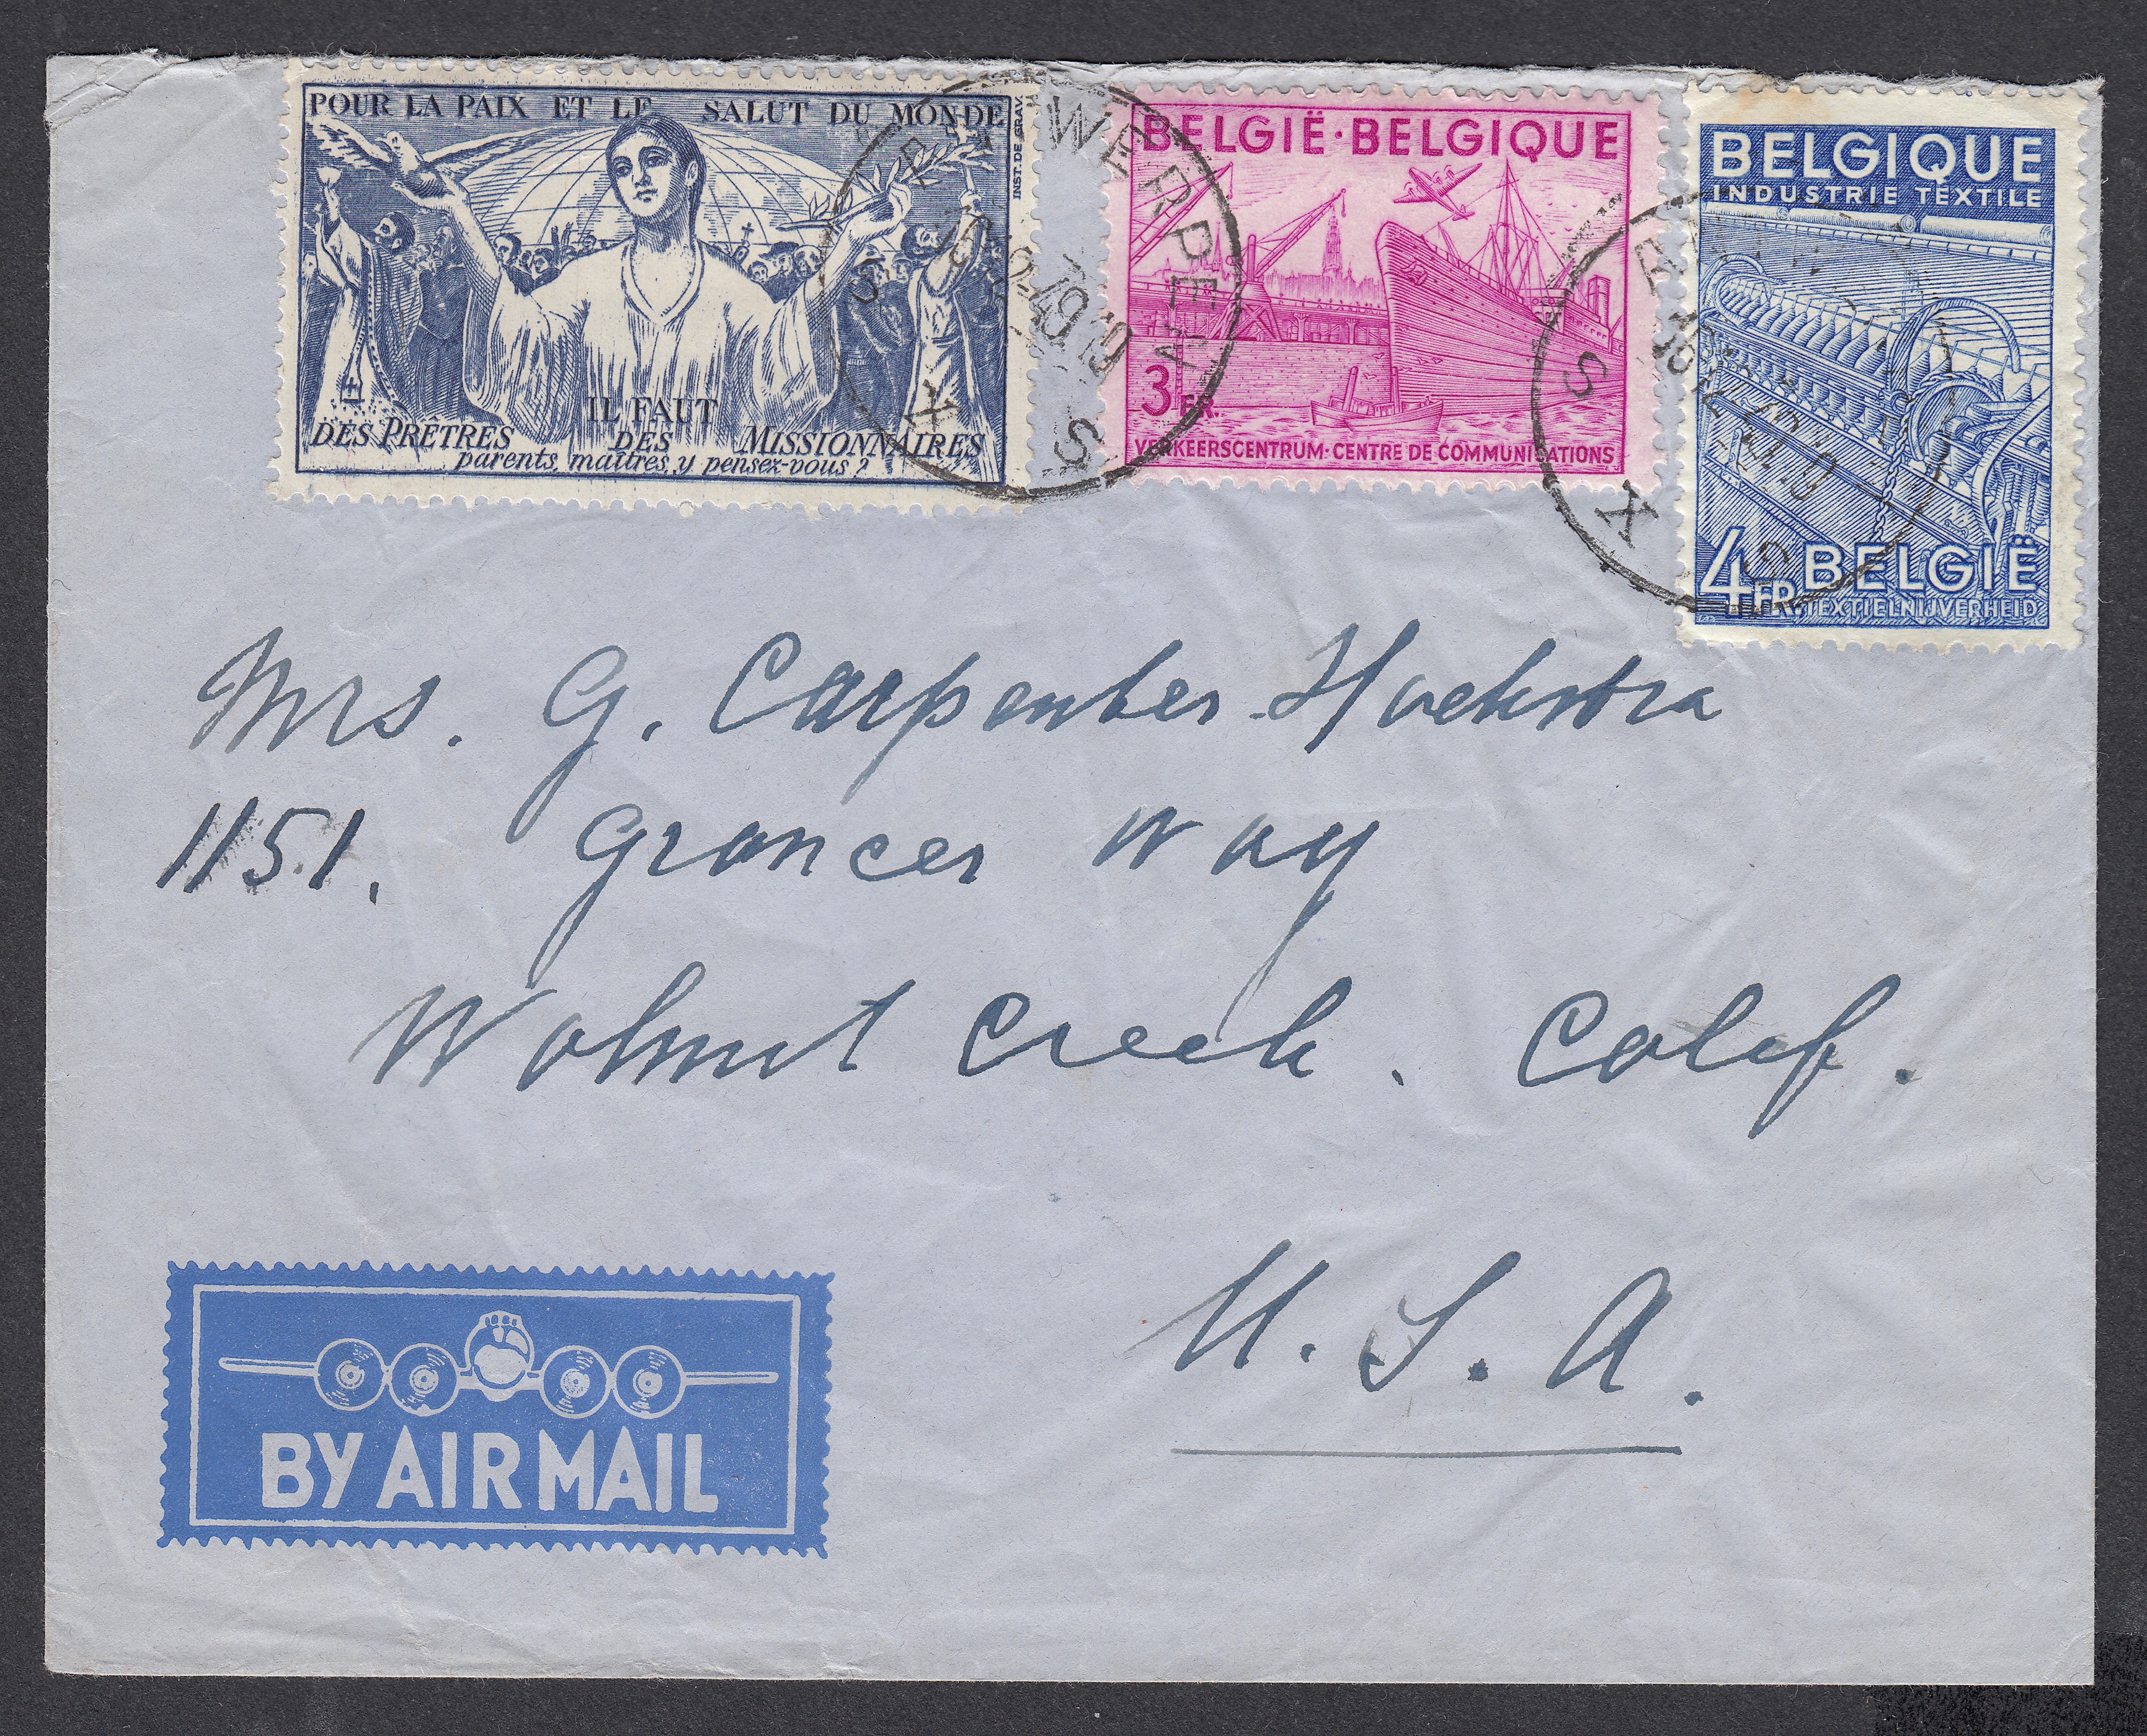 POUR LA PAIX ET LE SALUT DU MONDE
INST. DE GRAV.
IL FAUT
DES PRÊTRES DES MISSIONNAIRES
parents, maîtres, y pensez-vous?
BELGIË·BELGIQUE
3 FR.
VERKEERSCENTRUM·CENTRE DE COMMUNICATIONS
BELGIQUE
INDUSTRIE TEXTILE
4 FR. BELGIË
TEXTIELNIJVERHEID
ANTWERPEN
X
S
S
X
S
Mrs. G. Carpenter-Hoekstra
1151. Grancer Way
Walnut Creek. Calif.
U.S.A.
BY AIR MAIL